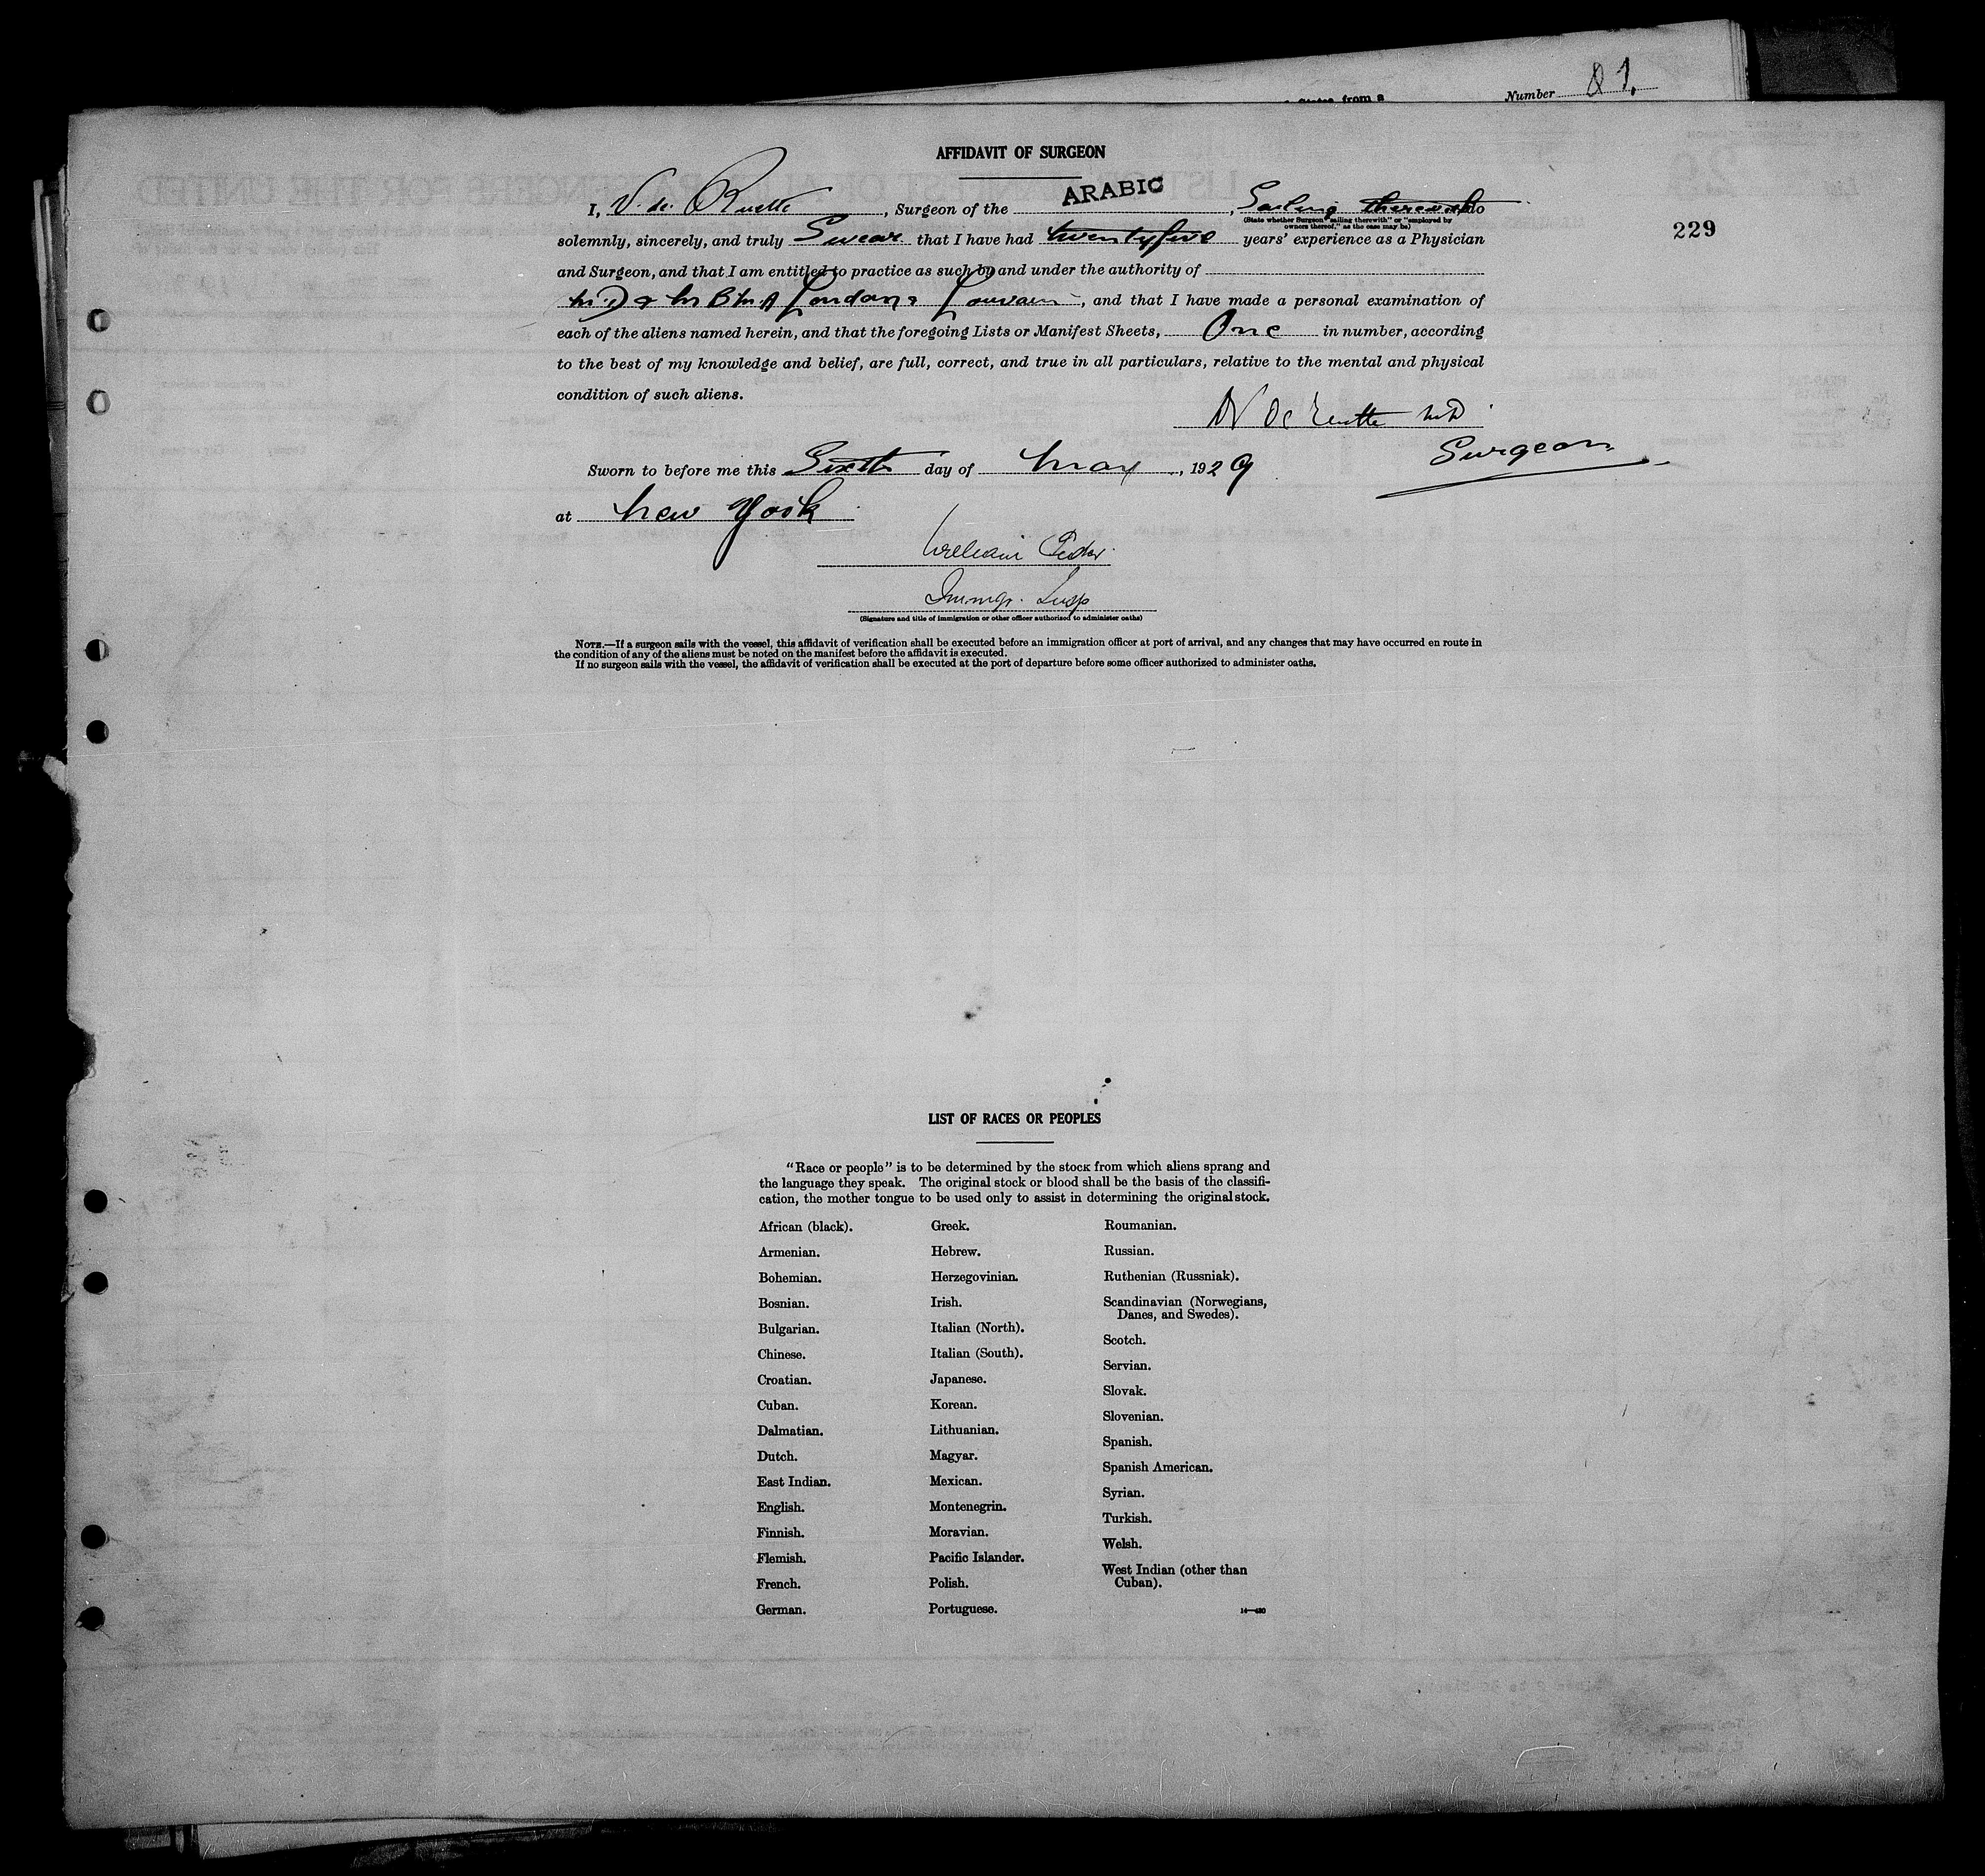 States, from a
Number 81.
AFFIDAVIT OF SURGEON
229
I, V. de Ruette, Surgeon of the ARABIC, Sailing therewith do
(State whether Surgeon "sailing therewith" or "employed by
owners thereof," as the case may be)
solemnly, sincerely, and truly Swear that I have had twenty five years' experience as a Physician
and Surgeon, and that I am entitled to practice as such by and under the authority of
M.D & London & Louvain, and that I have made a personal examination of
each of the aliens named herein, and that the foregoing Lists or Manifest Sheets, One in number, according
to the best of my knowledge and belief, are full, correct, and true in all particulars, relative to the mental and physical
condition of such aliens.
V de Ruette MD
Surgeon
Sworn to before me this Sixth day of May, 1929
at New York
William
Immgr. Insp
(Signature and title of immigration or other officer authorized to administer oaths)
NOTE.—If a surgeon sails with the vessel, this affidavit of verification shall be executed before an immigration officer at port of arrival, and any changes that may have occurred en route in
the condition of any of the aliens must be noted on the manifest before the affidavit is executed.
If no surgeon sails with the vessel, the affidavit of verification shall be executed at the port of departure before some officer authorized to administer oaths.
LIST OF RACES OR PEOPLES
"Race or people" is to be determined by the stock from which aliens sprang and
the language they speak. The original stock or blood shall be the basis of the classifi-
cation, the mother tongue to be used only to assist in determining the original stock.
African (black).
Armenian.
Bohemian.
Bosnian.
Bulgarian.
Chinese.
Croatian.
Cuban.
Dalmatian.
Dutch.
East Indian.
English.
Finnish.
Flemish.
French.
German.
Greek.
Hebrew.
Herzegovinian.
Irish.
Italian (North).
Italian (South).
Japanese.
Korean.
Lithuanian.
Magyar.
Mexican.
Montenegrin.
Moravian.
Pacific Islander.
Polish.
Portuguese.
Roumanian.
Russian.
Ruthenian (Russniak).
Scandinavian (Norwegians,
Danes, and Swedes).
Scotch.
Servian.
Slovak.
Slovenian.
Spanish.
Spanish American.
Syrian.
Turkish.
Welsh.
West Indian (other than
Cuban).
14—430